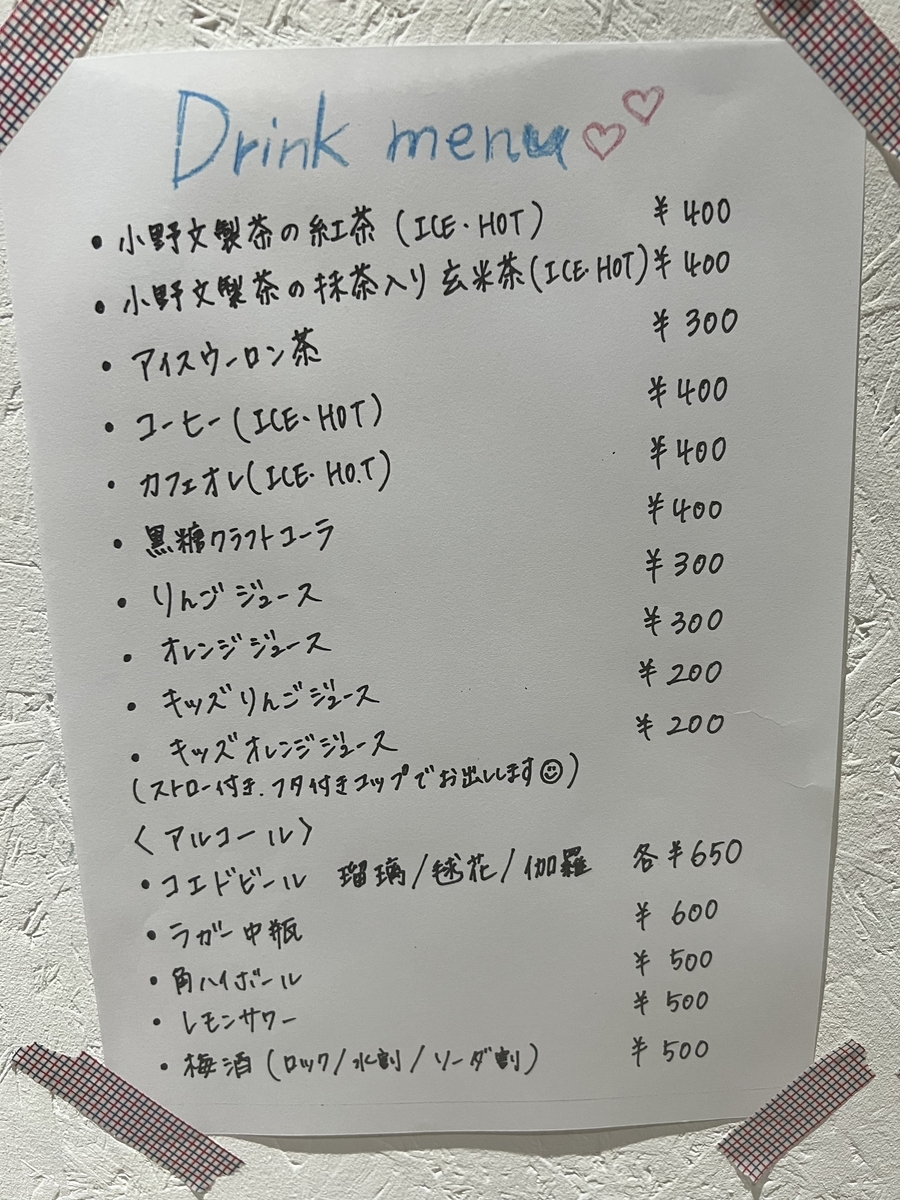 Drink menu
・小野文製茶の紅茶 (ICE・HOT) ¥400
・小野文製茶の抹茶入り 玄米茶(ICE・HOT) ¥400
・アイスウーロン茶 ¥300
・コーヒー(ICE・HOT) ¥400
・カフェオレ(ICE・HOT) ¥400
・黒糖クラフトコーラ ¥400
・りんごジュース ¥300
・オレンジジュース ¥300
・キッズりんごジュース ¥200
・キッズオレンジジュース ¥200
(ストロー付き.フタ付きコップでお出しします☺)
〈アルコール〉
・コエドビール 瑠璃/毬花/伽羅 各¥650
・ラガー中瓶 ¥600
・角ハイボール ¥500
・レモンサワー ¥500
・梅酒 (ロック/水割/ソーダ割) ¥500